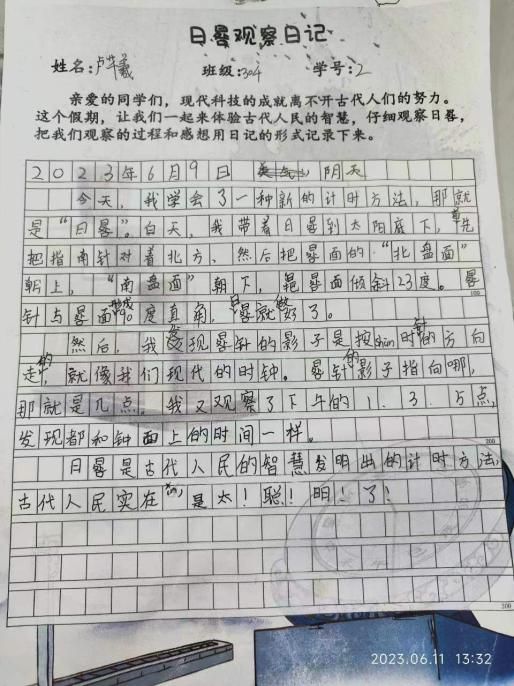 日晷观察日记
姓名:卢芊羲 班级:304 学号:2
亲爱的同学们，现代科技的成就离不开古代人们的努力。
这个假期，让我们一起来体验古代人民的智慧，仔细观察日晷，
把我们观察的过程和感想用日记的形式记录下来。
2023年6月9日 阴天
今天，我学会了一种新的计时方法，那就
是“日晷”。白天，我带着日晷到太阳底下，首先
把指南针对着北方、然后把晷面的“北盘面”
朝上，“南盘面”朝下，晷面倾斜23度。晷
针与晷面形成90度直角，日晷就做好了。
100
然后，我发现晷针的影子是按shùn时针的方向
走的，就像我们现代的时钟。晷针的影子指向哪，
那就是几点。我又观察了下午的1.3.5点，
发现都和钟面上的时间一样。
200
日晷是古代人民的智慧发明出的计时方法，
古代人民实在是太！聪！明！了！
300
2023.06.11 13:32